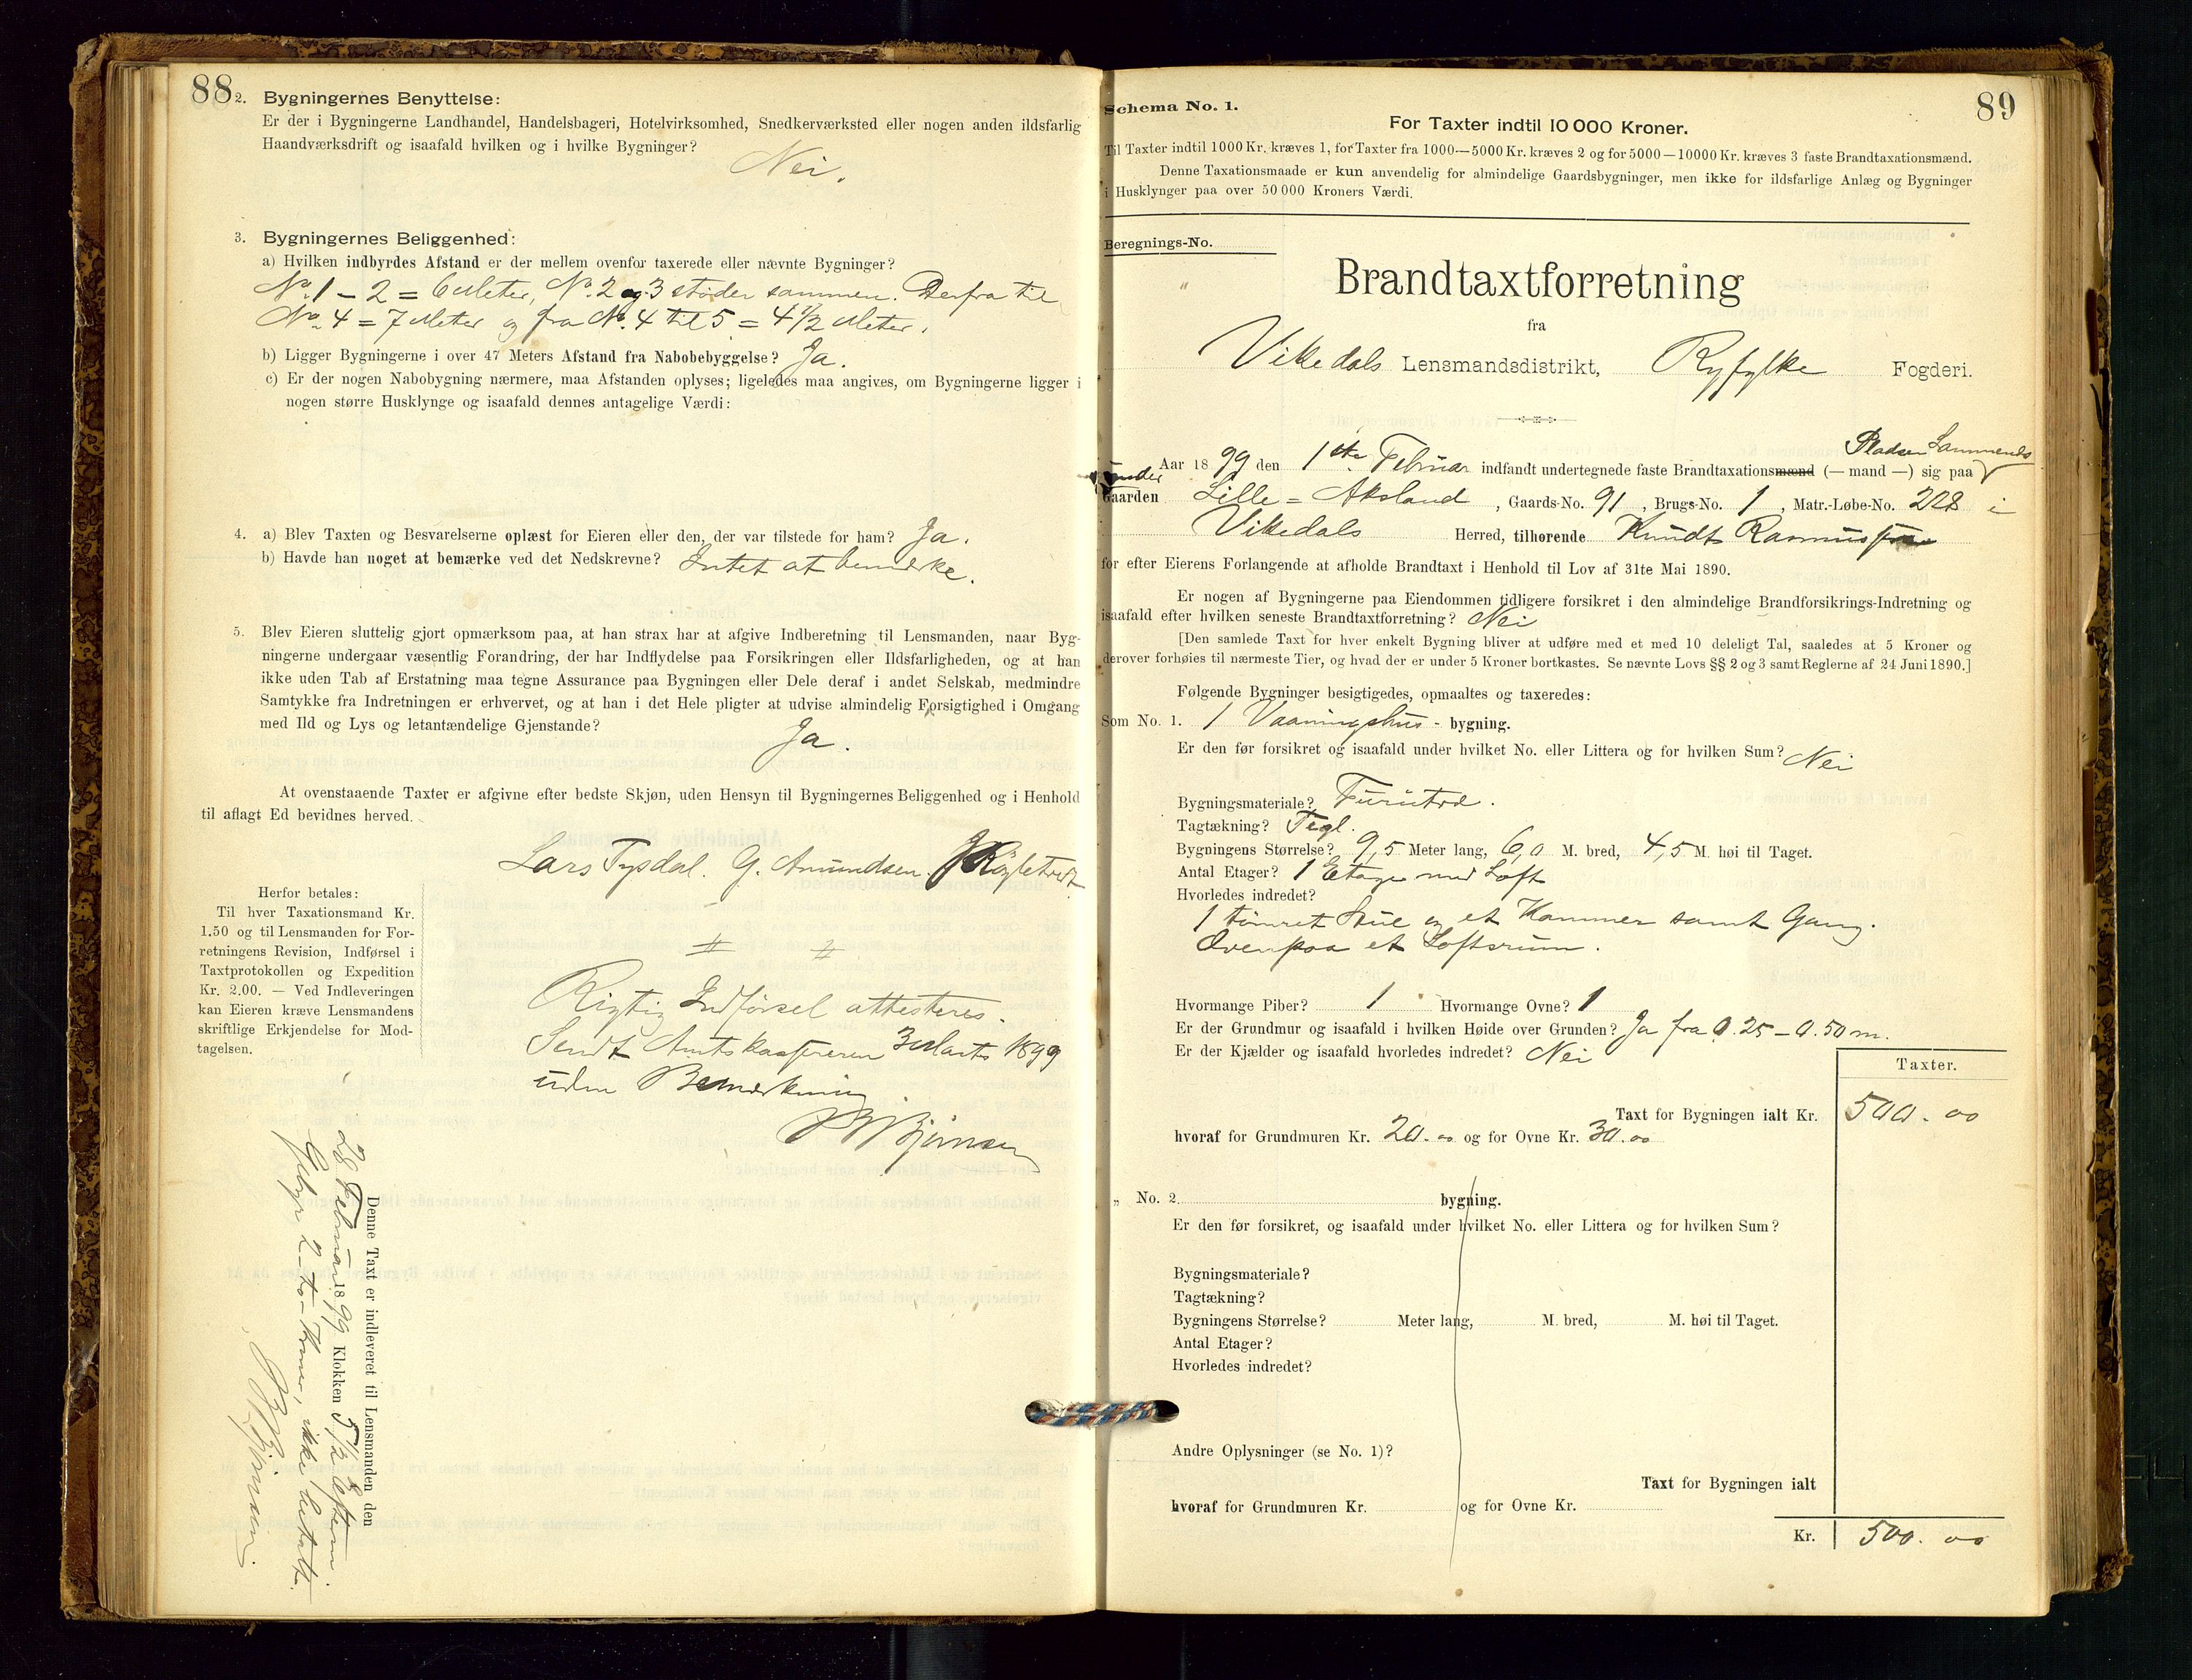 88
2. Bygningernes Benyttelse:
Er der i Bygningerne Landhandel, Handelsbageri, Hotelvirksomhed, Snedkerværksted eller nogen anden ildsfarlig
Haandværksdrift og isaafald hvilken og i hvilke Bygninger?
Nei.
3. Bygningernes Beliggenhed:
a) Hvilken indbyrdes Afstand er der mellem ovenfor taxerede eller nævnte Bygninger?
No. 1 – 2 = 6 Meter, No. 2 og 3 støder sammen. Derfra til
No. 4 = 7 Meter og fra No. 4 til 5 = 4 1/2 Meter.
b) Ligger Bygningerne i over 47 Meters Afstand fra Nabobebyggelse? Ja.
c) Er der nogen Nabobygning nærmere, maa Afstanden oplyses; ligeledes maa angives, om Bygningerne ligger i
nogen større Husklynge og isaafald dennes antagelige Værdi:
4. a) Blev Taxten og Besvarelserne oplæst for Eieren eller den, der var tilstede for ham? Ja.
b) Havde han noget at bemærke ved det Nedskrevne? Intet at bemærke.
5. Blev Eieren sluttelig gjort opmærksom paa, at han strax har at afgive Indberetning til Lensmanden, naar Byg-
ningerne undergaar væsentlig Forandring, der har Indflydelse paa Forsikringen eller Ildsfarligheden, og at han
ikke uden Tab af Erstatning maa tegne Assurance paa Bygningen eller Dele deraf i andet Selskab, medmindre
Samtykke fra Indretningen er erhvervet, og at han i det Hele pligter at udvise almindelig Forsigtighed i Omgang
med Ild og Lys og letantændelige Gjenstande?
Ja.
At ovenstaaende Taxter er afgivne efter bedste Skjøn, uden Hensyn til Bygningernes Beliggenhed og i Henhold
til aflagt Ed bevidnes herved.
Lars Tysdal. G. Amundsen.
Herfor betales:
Til hver Taxationsmand Kr.
1.50 og til Lensmanden for For-
retningens Revision, Indførsel i
Taxtprotokollen og Expedition
Kr. 2.00. — Ved Indleveringen
kan Eieren kræve Lensmandens
skriftlige Erkjendelse for Mod-
tagelsen.
Rigtig Indførsel attesteres.
Sendt Amtskassereren 3 Marts 1899
uden Bemærkning
Denne Taxt er indleveret til Lensmanden den
28 Februar 1899 Klokken 5 1/2 Efterm.
Gebyr 2 – to – Kroner, ikke betalt.
89
Schema No. 1.
For Taxter indtil 10 000 Kroner.
Til Taxter indtil 1000 Kr. kræves 1, for Taxter fra 1000—5000 Kr. kræves 2 og for 5000—10000 Kr. kræves 3 faste Brandtaxationsmænd.
Denne Taxationsmaade er kun anvendelig for almindelige Gaardsbygninger, men ikke for ildsfarlige Anlæg og Bygninger
i Husklynger paa over 50 000 Kroners Værdi.
Beregnings-No.
Brandtaxtforretning
fra
Vikedals Lensmandsdistrikt, Ryfylke Fogderi.
Pladsen
Aar 1899 den 1ste Februar indfandt undertegnede faste Brandtaxationsmænd (— mand —) sig paa
under
Gaarden Lille-Aksland, Gaards-No. 91, Brugs-No. 1, Matr.-Løbe-No. 228 i
Vikedals Herred, tilhørende Knudt Rasmus
for efter Eierens Forlangende at afholde Brandtaxt i Henhold til Lov af 31te Mai 1890.
Er nogen af Bygningerne paa Eiendommen tidligere forsikret i den almindelige Brandforsikrings-Indretning og
isaafald efter hvilken seneste Brandtaxtforretning? Nei
[Den samlede Taxt for hver enkelt Bygning bliver at udføre med et med 10 deleligt Tal, saaledes at 5 Kroner og
derover forhøies til nærmeste Tier, og hvad der er under 5 Kroner bortkastes. Se nævnte Lovs §§ 2 og 3 samt Reglerne af 24 Juni 1890.]
Følgende Bygninger besigtigedes, opmaaltes og taxeredes:
Som No. 1. 1 Vaaningshus - bygning.
Er den før forsikret og isaafald under hvilket No. eller Littera og for hvilken Sum? Nei
Bygningsmateriale? Furutræ.
Tagtækning? Tegl.
Bygningens Størrelse? 9,5 Meter lang, 6,0 M. bred, 4,5 M. høi til Taget.
Antal Etager? 1 Etage med Loft
Hvorledes indredet?
1 tømret Stue og et Kammer samt Gang.
Ovenpaa et Loftsrum.
Hvormange Piber? 1 Hvormange Ovne? 1
Er der Grundmur og isaafald i hvilken Høide over Grunden? Ja fra 0.25 – 0.50 m.
Er der Kjælder og isaafald hvorledes indredet? Nei
Taxter.
Taxt for Bygningen ialt Kr. 500.00
hvoraf for Grundmuren Kr. 20.00 og for Ovne Kr. 30.00
„ No. 2. bygning.
Er den før forsikret, og isaafald under hvilket No. eller Littera og for hvilken Sum?
Bygningsmateriale?
Tagtækning?
Bygningens Størrelse? Meter lang, M. bred, M. høi til Taget.
Antal Etager?
Hvorledes indredet?
Andre Oplysninger (se No. 1)?
Taxt for Bygningen ialt
hvoraf for Grundmuren Kr. og for Ovne Kr.
Kr. 500.00